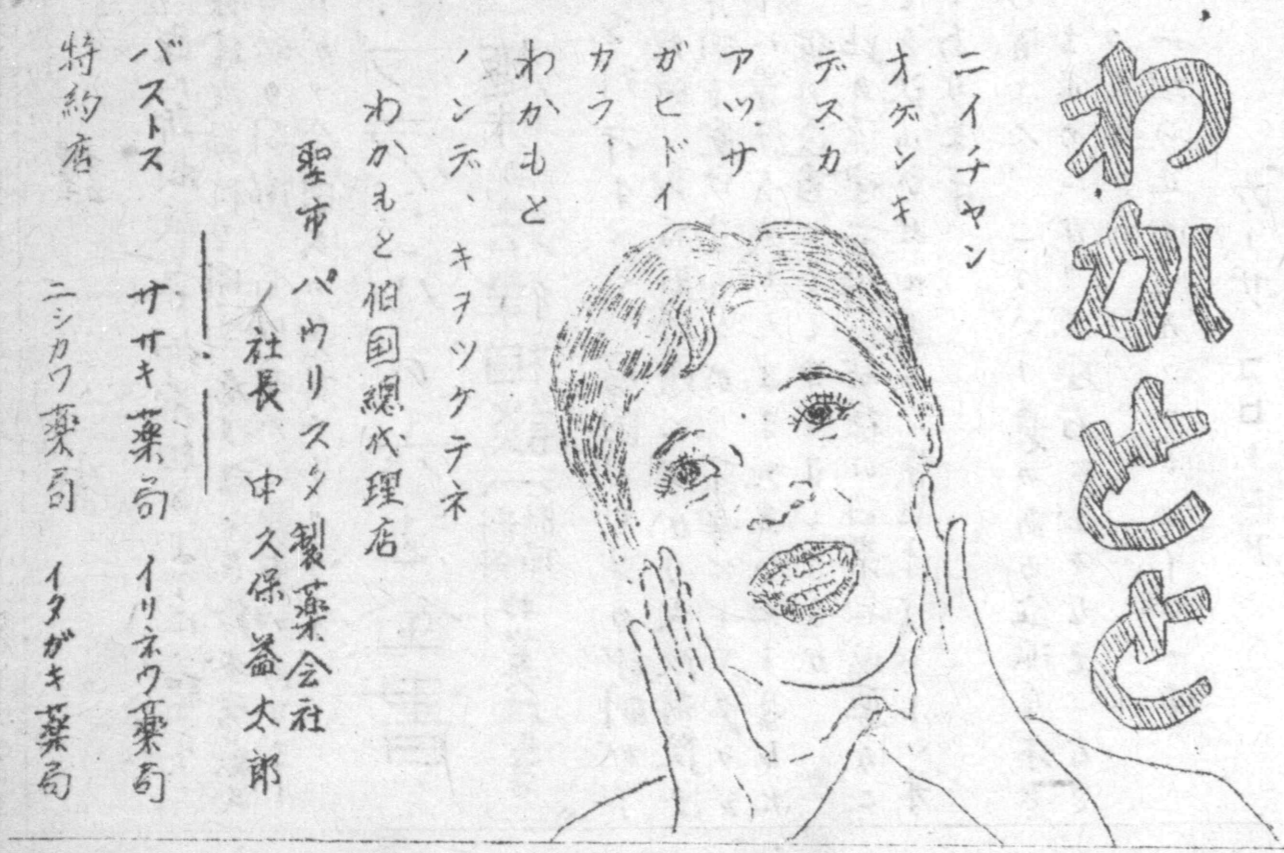 わかもと
ニイチャン
オゲンキ
デスカ
アツサ
ガヒドイ
カラ、
わかもと
ノンデ、キヲツケテネ
わかもと伯国総代理店
聖市パウリスタ製薬会社
社長 中久保益太郎
バストス ササキ薬局 イリネウ薬局
特約店 ニシカワ薬局 イタガキ薬局